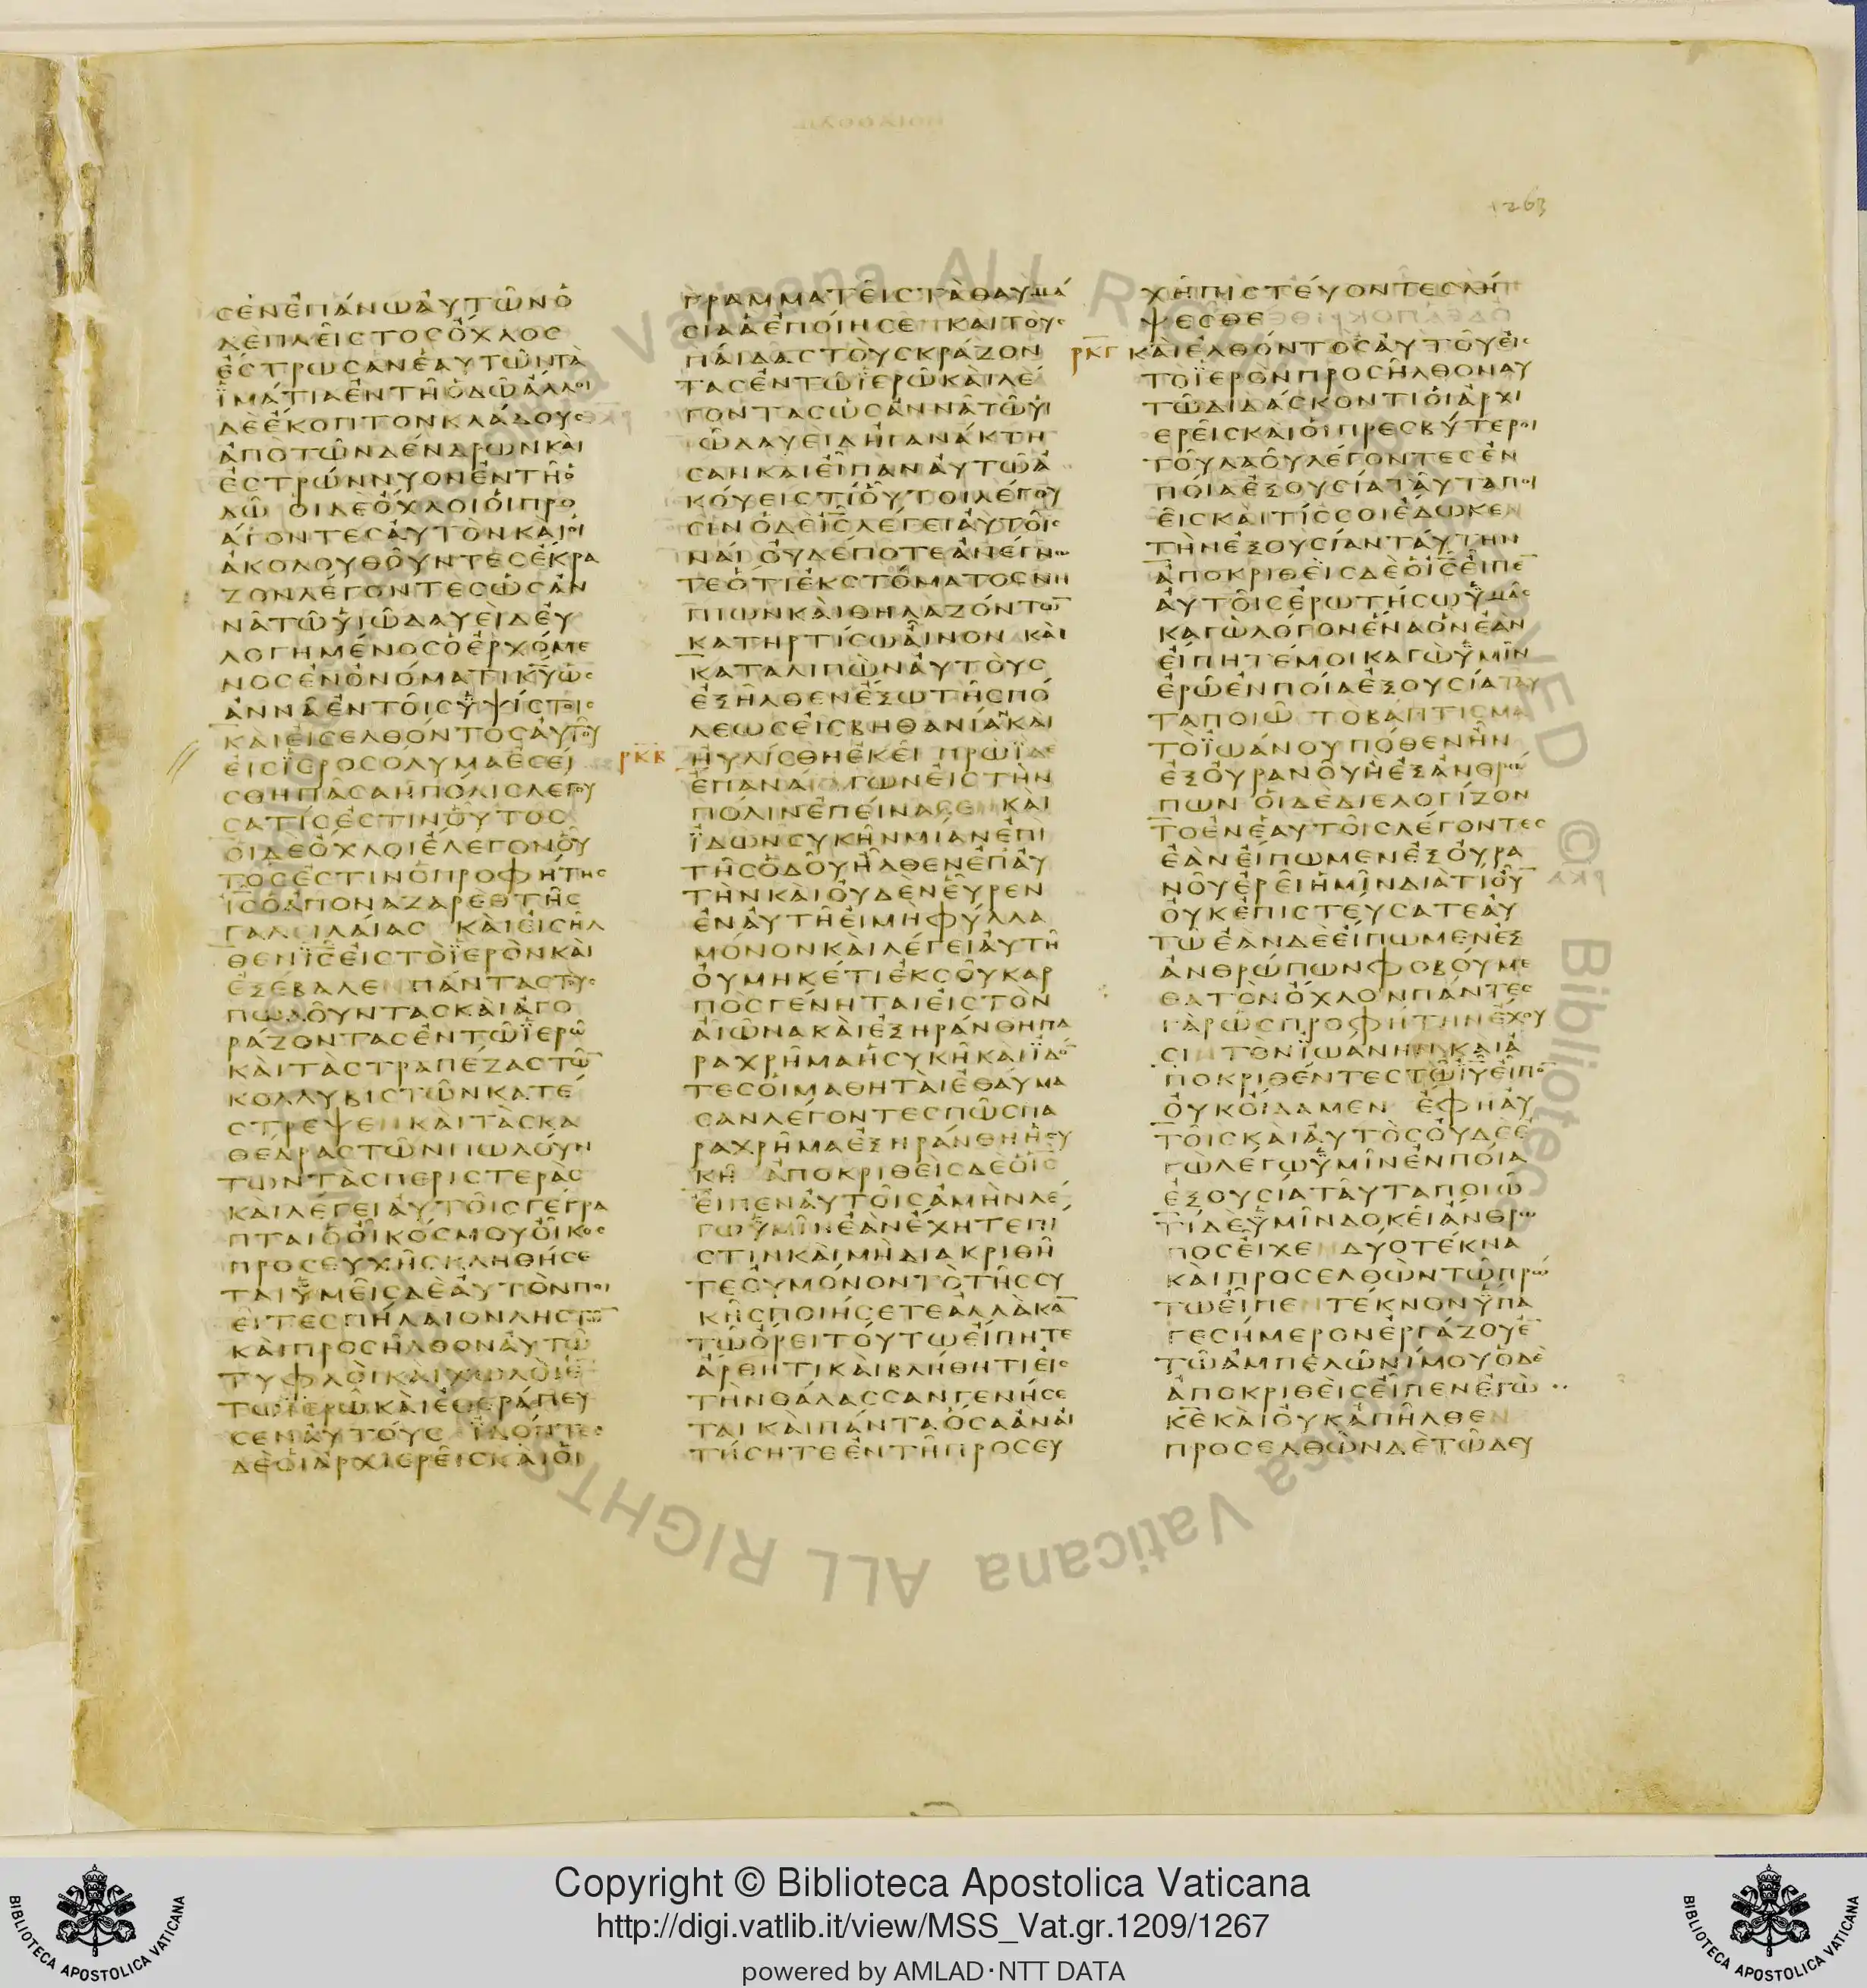 1263
ϹΕΝΕΠΑΝΩΑΥΤΩΝΟ
ΔΕΠΛΕΙϹΤΟϹΟΧΛΟϹ
ΕϹΤΡΩϹΑΝΕΑΥΤΩΝΤΑ
ΪΜΑΤΙΑΕΝΤΗΟΔΩΑΛΛΟΙ
ΔΕΕΚΟΠΤΟΝΚΛΑΔΟΥϹ
ΑΠΟΤΩΝΔΕΝΔΡΩΝΚΑΙ
ΕϹΤΡΩΝΝΥΟΝΕΝΤΗΟ
ΔΩ ΟΙΔΕΟΧΛΟΙΟΙΠΡΟ
ΑΓΟΝΤΕϹΑΥΤΟΝΚΑΙΟΙ
ΑΚΟΛΟΥΘΟΥΝΤΕϹΕΚΡΑ
ΖΟΝΛΕΓΟΝΤΕϹΩϹΑΝ
ΝΑΤΩΥΙΩΔΑΥΕΙΔΕΥ
ΛΟΓΗΜΕΝΟϹΟΕΡΧΟΜΕ
ΝΟϹΕΝΟΝΟΜΑΤΙΚΥΩϹ
ΑΝΝΑΕΝΤΟΙϹΫΨΙϹΤΟΙϹ
ΚΑΙΕΙϹΕΛΘΟΝΤΟϹΑΥΤΟΥ
ΕΙϹΪΕΡΟϹΟΛΥΜΑΕϹΕΙ
ϹΘΗΠΑϹΑΗΠΟΛΙϹΛΕΓΟΥ
ϹΑΤΙϹΕϹΤΙΝΟΥΤΟϹ
ΟΙΔΕΟΧΛΟΙΕΛΕΓΟΝΟΥ
ΤΟϹΕϹΤΙΝΟΠΡΟΦΗΤΗϹ
ΙϹΟΑΠΟΝΑΖΑΡΕΘΤΗϹ
ΓΑΛΕΙΛΑΙΑϹ ΚΑΙΕΙϹΗΛ
ΘΕΝΙϹΕΙϹΤΟΪΕΡΟΝΚΑΙ
ΕΞΕΒΑΛΕΝΠΑΝΤΑϹΤΟΥϹ
ΠΩΛΟΥΝΤΑϹΚΑΙΑΓΟ
ΡΑΖΟΝΤΑϹΕΝΤΩΪΕΡΩ
ΚΑΙΤΑϹΤΡΑΠΕΖΑϹΤΩ̅
ΚΟΛΛΥΒΙϹΤΩΝΚΑΤΕ
ϹΤΡΕΨΕΝΚΑΙΤΑϹΚΑ
ΘΕΔΡΑϹΤΩΝΠΩΛΟΥΝ
ΤΩΝΤΑϹΠΕΡΙϹΤΕΡΑϹ
ΚΑΙΛΕΓΕΙΑΥΤΟΙϹΓΕΓΡΑ
ΠΤΑΙΟΟΙΚΟϹΜΟΥΟΙΚΟϹ
ΠΡΟϹΕΥΧΗϹΚΛΗΘΗϹΕ
ΤΑΙΫΜΕΙϹΔΕΑΥΤΟΝΠΟΙ
ΕΙΤΕϹΠΗΛΑΙΟΝΛΗϹΤΩ̅
ΚΑΙΠΡΟϹΗΛΘΟΝΑΥΤΩ
ΤΥΦΛΟΙΚΑΙΧΩΛΟΙΕ̅
ΤΩΪΕΡΩΚΑΙΕΘΕΡΑΠΕΥ
ϹΕΝΑΥΤΟΥϹ ΪΔΟΝΤΕϹ
ΔΕΟΙΑΡΧΙΕΡΕΙϹΚΑΙΟΙ
ΓΡΑΜΜΑΤΕΙϹΤΑΘΑΥΜΑ
ϹΙΑΑΕΠΟΙΗϹΕΝΚΑΙΤΟΥϹ
ΠΑΙΔΑϹΤΟΥϹΚΡΑΖΟΝ
ΤΑϹΕΝΤΩΪΕΡΩΚΑΙΛΕ
ΓΟΝΤΑϹΩϹΑΝΝΑΤΩΥΙ
ΩΔΑΥΕΙΔΗΓΑΝΑΚΤΗ
ϹΑΝΚΑΙΕΙΠΑΝΑΥΤΩΑ
ΚΟΥΕΙϹΤΙΟΥΤΟΙΛΕΓΟΥ
ϹΙΝΟΔΕΙϹΛΕΓΕΙΑΥΤΟΙϹ
ΝΑΙ ΟΥΔΕΠΟΤΕΑΝΕΓΝΩ
ΤΕΟΤΙΕΚϹΤΟΜΑΤΟϹΝΗ
ΠΙΩΝΚΑΙΘΗΛΑΖΟΝΤΩ̅
ΚΑΤΗΡΤΙϹΩΑΙΝΟΝ ΚΑΙ
ΚΑΤΑΛΙΠΩΝΑΥΤΟΥϹ
ΕΞΗΛΘΕΝΕΞΩΤΗϹΠΟ
ΛΕΩϹΕΙϹΒΗΘΑΝΙΑ̅ΚΑΙ
ΡΚΒ ΗΥΛΙϹΘΗΕΚΕΙ ΠΡΩΪΔΕ
ΕΠΑΝΑΓΩΝΕΙϹΤΗΝ
ΠΟΛΙΝΕΠΕΙΝΑϹΕΝΚΑΙ
ΪΔΩΝϹΥΚΗΝΜΙΑΝΕΠΙ
ΤΗϹΟΔΟΥΗΛΘΕΝΕΠΑΥ
ΤΗΝΚΑΙΟΥΔΕΝΕΥΡΕΝ
ΕΝΑΥΤΗΕΙΜΗΦΥΛΛΑ
ΜΟΝΟΝΚΑΙΛΕΓΕΙΑΥΤΗ
ΟΥΜΗΚΕΤΙΕΚϹΟΥΚΑΡ
ΠΟϹΓΕΝΗΤΑΙΕΙϹΤΟΝ
ΑΙΩΝΑΚΑΙΕΞΗΡΑΝΘΗΠΑ
ΡΑΧΡΗΜΑΗϹΥΚΗΚΑΙΪΔΟ̅
ΤΕϹΟΙΜΑΘΗΤΑΙΕΘΑΥΜΑ
ϹΑΝΛΕΓΟΝΤΕϹΠΩϹΠΑ
ΡΑΧΡΗΜΑΕΞΗΡΑΝΘΗΗϹΥ
ΚΗ ΑΠΟΚΡΙΘΕΙϹΔΕΟΙϹ
ΕΙΠΕΝΑΥΤΟΙϹΑΜΗΝΛΕ
ΓΩΫΜΙΝΕΑΝΕΧΗΤΕΠΙ
ϹΤΙΝΚΑΙΜΗΔΙΑΚΡΙΘΗ
ΤΕΟΥΜΟΝΟΝΤΟΤΗϹϹΥ
ΚΗϹΠΟΙΗϹΕΤΕΑΛΛΑΚΑ̅
ΤΩΟΡΕΙΤΟΥΤΩΕΙΠΗΤΕ
ΑΡΘΗΤΙΚΑΙΒΛΗΘΗΤΙΕΙϹ
ΤΗΝΘΑΛΑϹϹΑΝΓΕΝΗϹΕ
ΤΑΙ ΚΑΙΠΑΝΤΑΟϹΑΑΝΑΙ
ΤΗϹΗΤΕΕΝΤΗΠΡΟϹΕΥ
ΧΗΠΙϹΤΕΥΟΝΤΕϹΛΗ
ΨΕϹΘΕ
ΡΚΓ ΚΑΙΕΛΘΟΝΤΟϹΑΥΤΟΥΕΙϹ
ΤΟΪΕΡΟΝΠΡΟϹΗΛΘΟΝΑΥ
ΤΩΔΙΔΑϹΚΟΝΤΙΟΙΑΡΧΙ
ΕΡΕΙϹΚΑΙΟΙΠΡΕϹΒΥΤΕΡΟΙ
ΤΟΥΛΑΟΥΛΕΓΟΝΤΕϹΕΝ
ΠΟΙΑΕΞΟΥϹΙΑΤΑΥΤΑΠΟΙ
ΕΙϹΚΑΙΤΙϹϹΟΙΕΔΩΚΕΝ
ΤΗΝΕΞΟΥϹΙΑΝΤΑΥΤΗΝ
ΑΠΟΚΡΙΘΕΙϹΔΕΟΙϹΕΙΠΕ̅
ΑΥΤΟΙϹΕΡΩΤΗϹΩΫΜΑϹ
ΚΑΓΩΛΟΓΟΝΕΝΑΟΝΕΑΝ
ΕΙΠΗΤΕΜΟΙΚΑΓΩΫΜΙΝ
ΕΡΩΕΝΠΟΙΑΕΞΟΥϹΙΑΤΑΥ
ΤΑΠΟΙΩ ΤΟΒΑΠΤΙϹΜΑ
ΤΟΪΩΑΝΟΥΠΟΘΕΝΗΝ
ΕΞΟΥΡΑΝΟΥΗΕΞΑΝΘΡΩ
ΠΩΝ ΟΙΔΕΔΙΕΛΟΓΙΖΟΝ
ΤΟΕΝΕΑΥΤΟΙϹΛΕΓΟΝΤΕϹ
ΕΑΝΕΙΠΩΜΕΝΕΞΟΥΡΑ
ΝΟΥΕΡΕΙΗΜΙΝΔΙΑΤΙΟΥ̅
ΟΥΚΕΠΙϹΤΕΥϹΑΤΕΑΥ
ΤΩΕΑΝΔΕΕΙΠΩΜΕΝΕΞ
ΑΝΘΡΩΠΩΝΦΟΒΟΥΜΕ
ΘΑΤΟΝΟΧΛΟΝΠΑΝΤΕϹ
ΓΑΡΩϹΠΡΟΦΗΤΗΝΕΧΟΥ
ϹΙΝΤΟΝΪΩΑΝΗΝΚΑΙΑ
ΠΟΚΡΙΘΕΝΤΕϹΤΩΙΥΕΙΠΟ̅
ΟΥΚΟΙΔΑΜΕΝ ΕΦΗΑΥ
ΤΟΙϹΚΑΙΑΥΤΟϹΟΥΔΕΕ
ΓΩΛΕΓΩΫΜΙΝΕΝΠΟΙΑ
ΕΞΟΥϹΙΑΤΑΥΤΑΠΟΙΩ
ΤΙΔΕΫΜΙΝΔΟΚΕΙΑΝΘΡΩ
ΠΟϹΕΙΧΕΝΔΥΟΤΕΚΝΑ
ΚΑΙΠΡΟϹΕΛΘΩΝΤΩΠΡΩ
ΤΩΕΙΠΕΝΤΕΚΝΟΝΫΠΑ
ΓΕϹΗΜΕΡΟΝΕΡΓΑΖΟΥΕ̅
ΤΩΑΜΠΕΛΩΝΙΜΟΥΟΔΕ
ΑΠΟΚΡΙΘΕΙϹΕΙΠΕΝΕΓΩ
ΚΕΚΑΙΟΥΚΑΠΗΛΘΕΝ
ΠΡΟϹΕΛΘΩΝΔΕΤΩΔΕΥ
Copyright © Biblioteca Apostolica Vaticana
http://digi.vatlib.it/view/MSS_Vat.gr.1209/1267
powered by AMLAD·NTT DATA
BIBLIOTECA APOSTOLICA VATICANA
BIBLIOTECA APOSTOLICA VATICANA